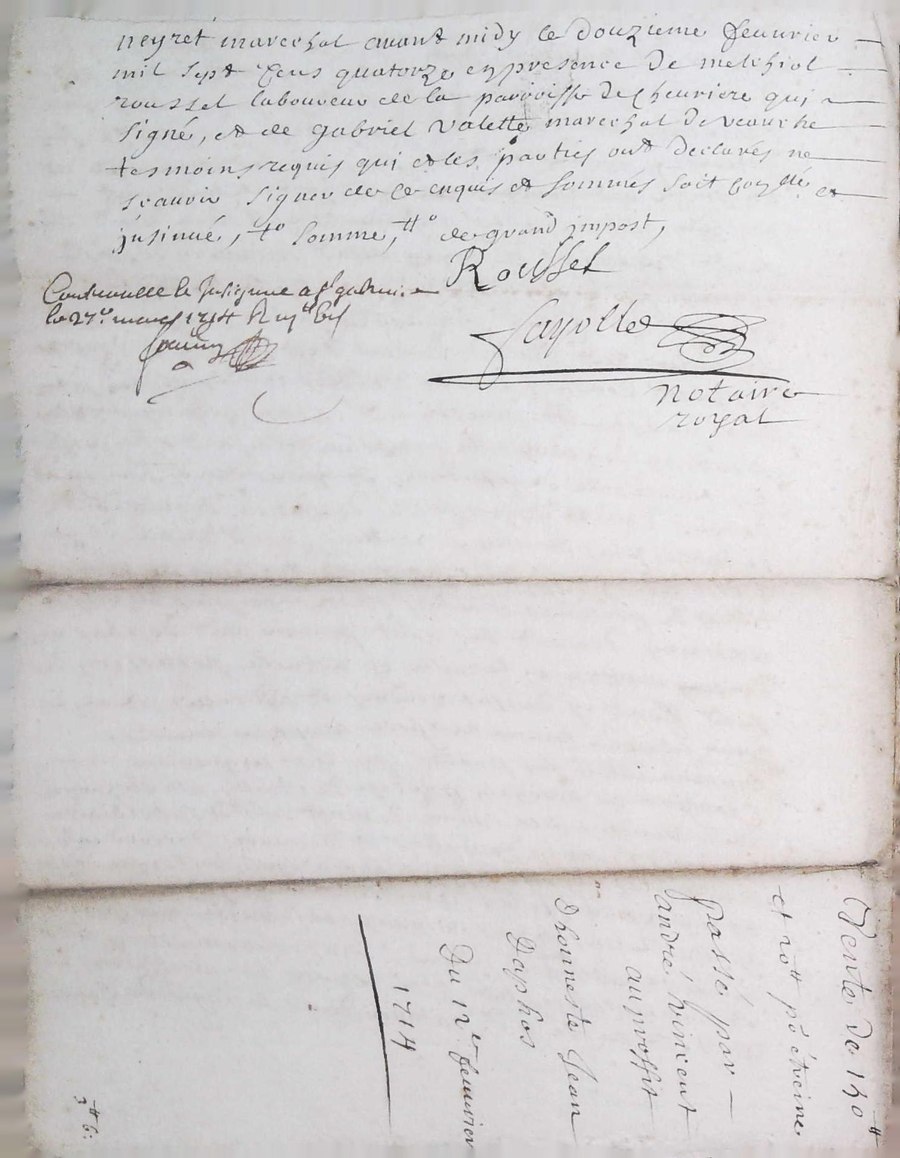 neyret marechal avant midy le douzieme feuurier
mil sept cens quatorze en presence de melchiol
roussel laboureur de la parroisse de cheuriere qui a
signé, et de gabriel valette marechal de veauche
tesmoins requis qui et les parties ont declarés ne
scauoir signer de ce enquis et sommés soit et
jnsinué, somme, de grand jmpost,
Roussel
Controuelle le jnsignue a
le 27e mars 1714
fayolle
notaire
royal
Vente de 150 tt
et 10 tt po étreine
Passé par
andré vincent
au proffit
Dhonneste Jean
Daphos
Du 12e feuurier
1714
3 tt 6: